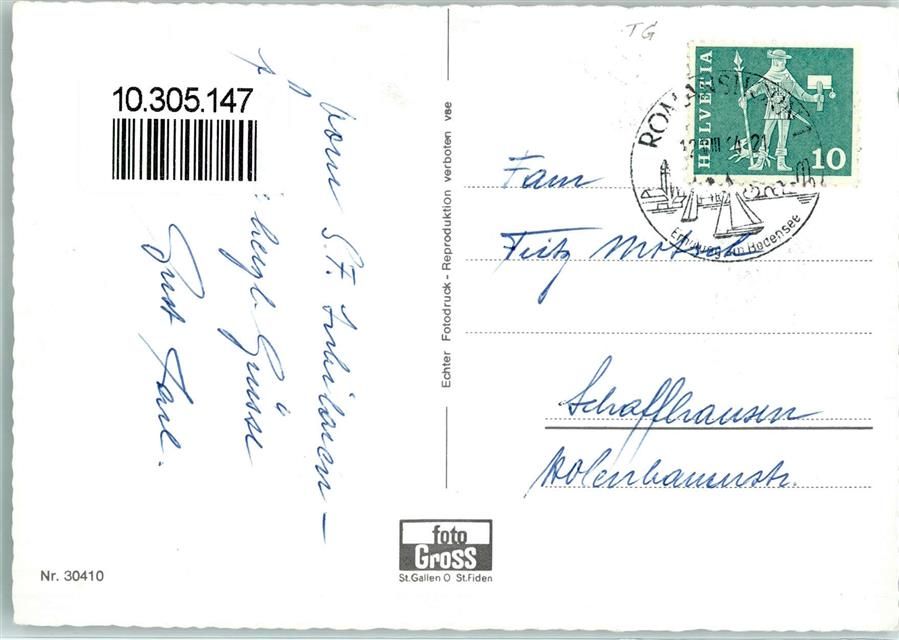 TG
10.305.147
vom S.F. Jubiläum –
herzl. Grüsse
Gust Karl.
Echter Fotodruck - Reproduktion verboten vse
HELVETIA
10
ROMANSHORN 1
Erholung am Bodensee
Fam
Fritz
Schaffhausen
Nr. 30410
foto
Gross
St.Gallen O St.Fiden